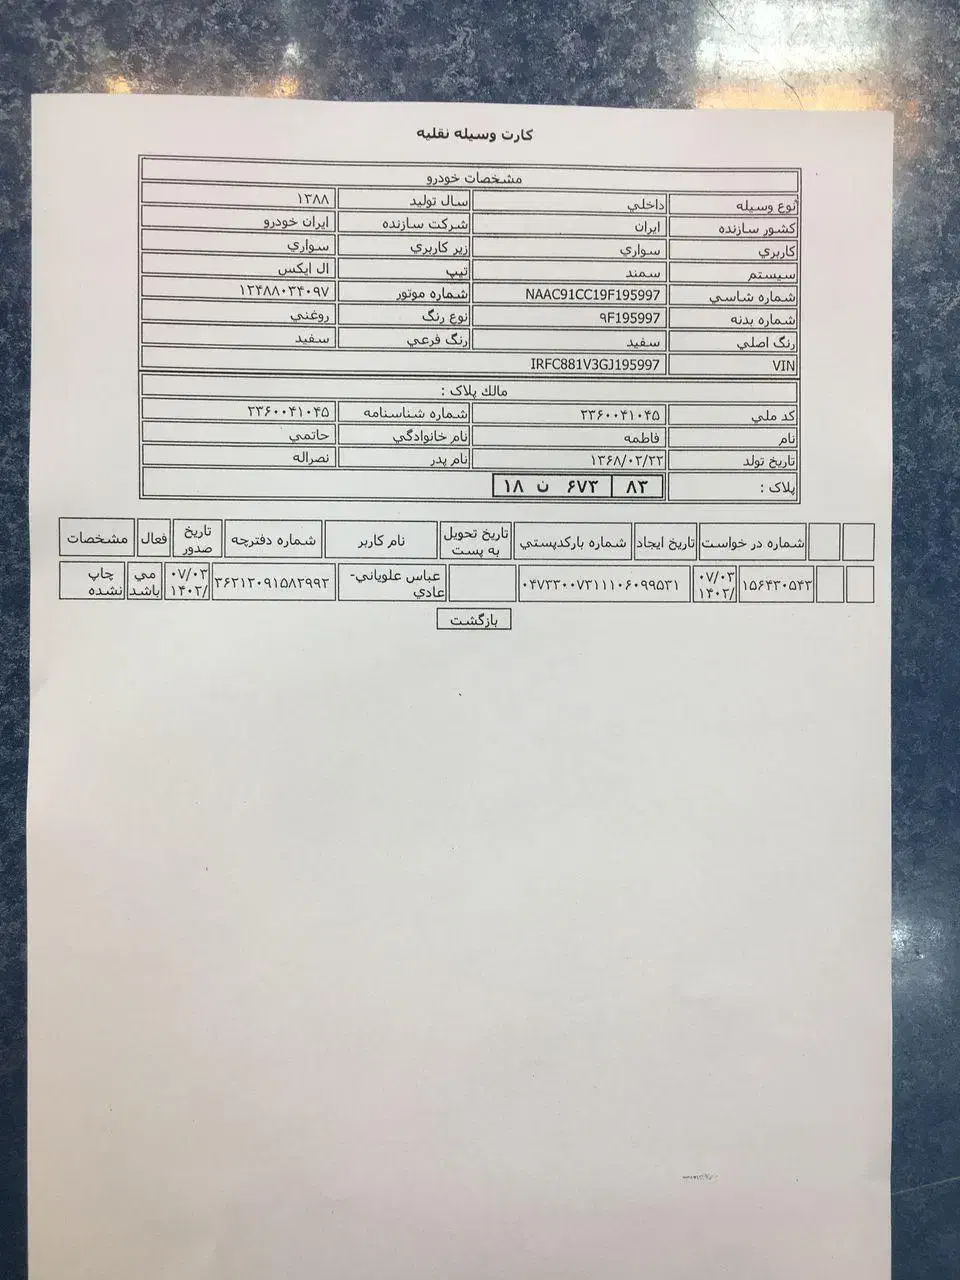 کارت وسیله نقلیه
مشخصات خودرو
نوع وسیله داخلي سال تولید ۱۳۸۸
کشور سازنده ایران شرکت سازنده ایران خودرو
کاربري سواري زیر کاربري سواري
سیستم سمند تیپ ال ایکس
شماره شاسي NAAC91CC19F195997 شماره موتور ۱۲۴۸۸۰۳۴۰۹۷
شماره بدنه ۹F195997 نوع رنگ روغني
رنگ اصلي سفید رنگ فرعي سفید
VIN IRFC881V3GJ195997
مالك پلاک :
کد ملي ۲۳۶۰۰۴۱۰۴۵ شماره شناسنامه ۲۳۶۰۰۴۱۰۴۵
نام فاطمه نام خانوادگي حاتمي
تاریخ تولد ۱۳۶۸/۰۲/۲۲ نام پدر نصراله
پلاک : ۸۳ ۶۷۳ ن ۱۸
شماره در خواست تاریخ ایجاد شماره بارکدپستي تاریخ تحویل به پست نام کاربر شماره دفترچه تاریخ صدور فعال مشخصات
۱۵۶۴۳۰۵۴۳ ۰۷/۰۳ /۱۴۰۲ ۰۴۷۳۳۰۰۷۳۱۱۱۰۶۰۹۹۵۳۱ عباس علویاني- عادي ۳۶۲۱۲۰۹۱۵۸۲۹۹۲ ۰۷/۰۳ /۱۴۰۲ مي باشد چاپ نشده
بازگشت